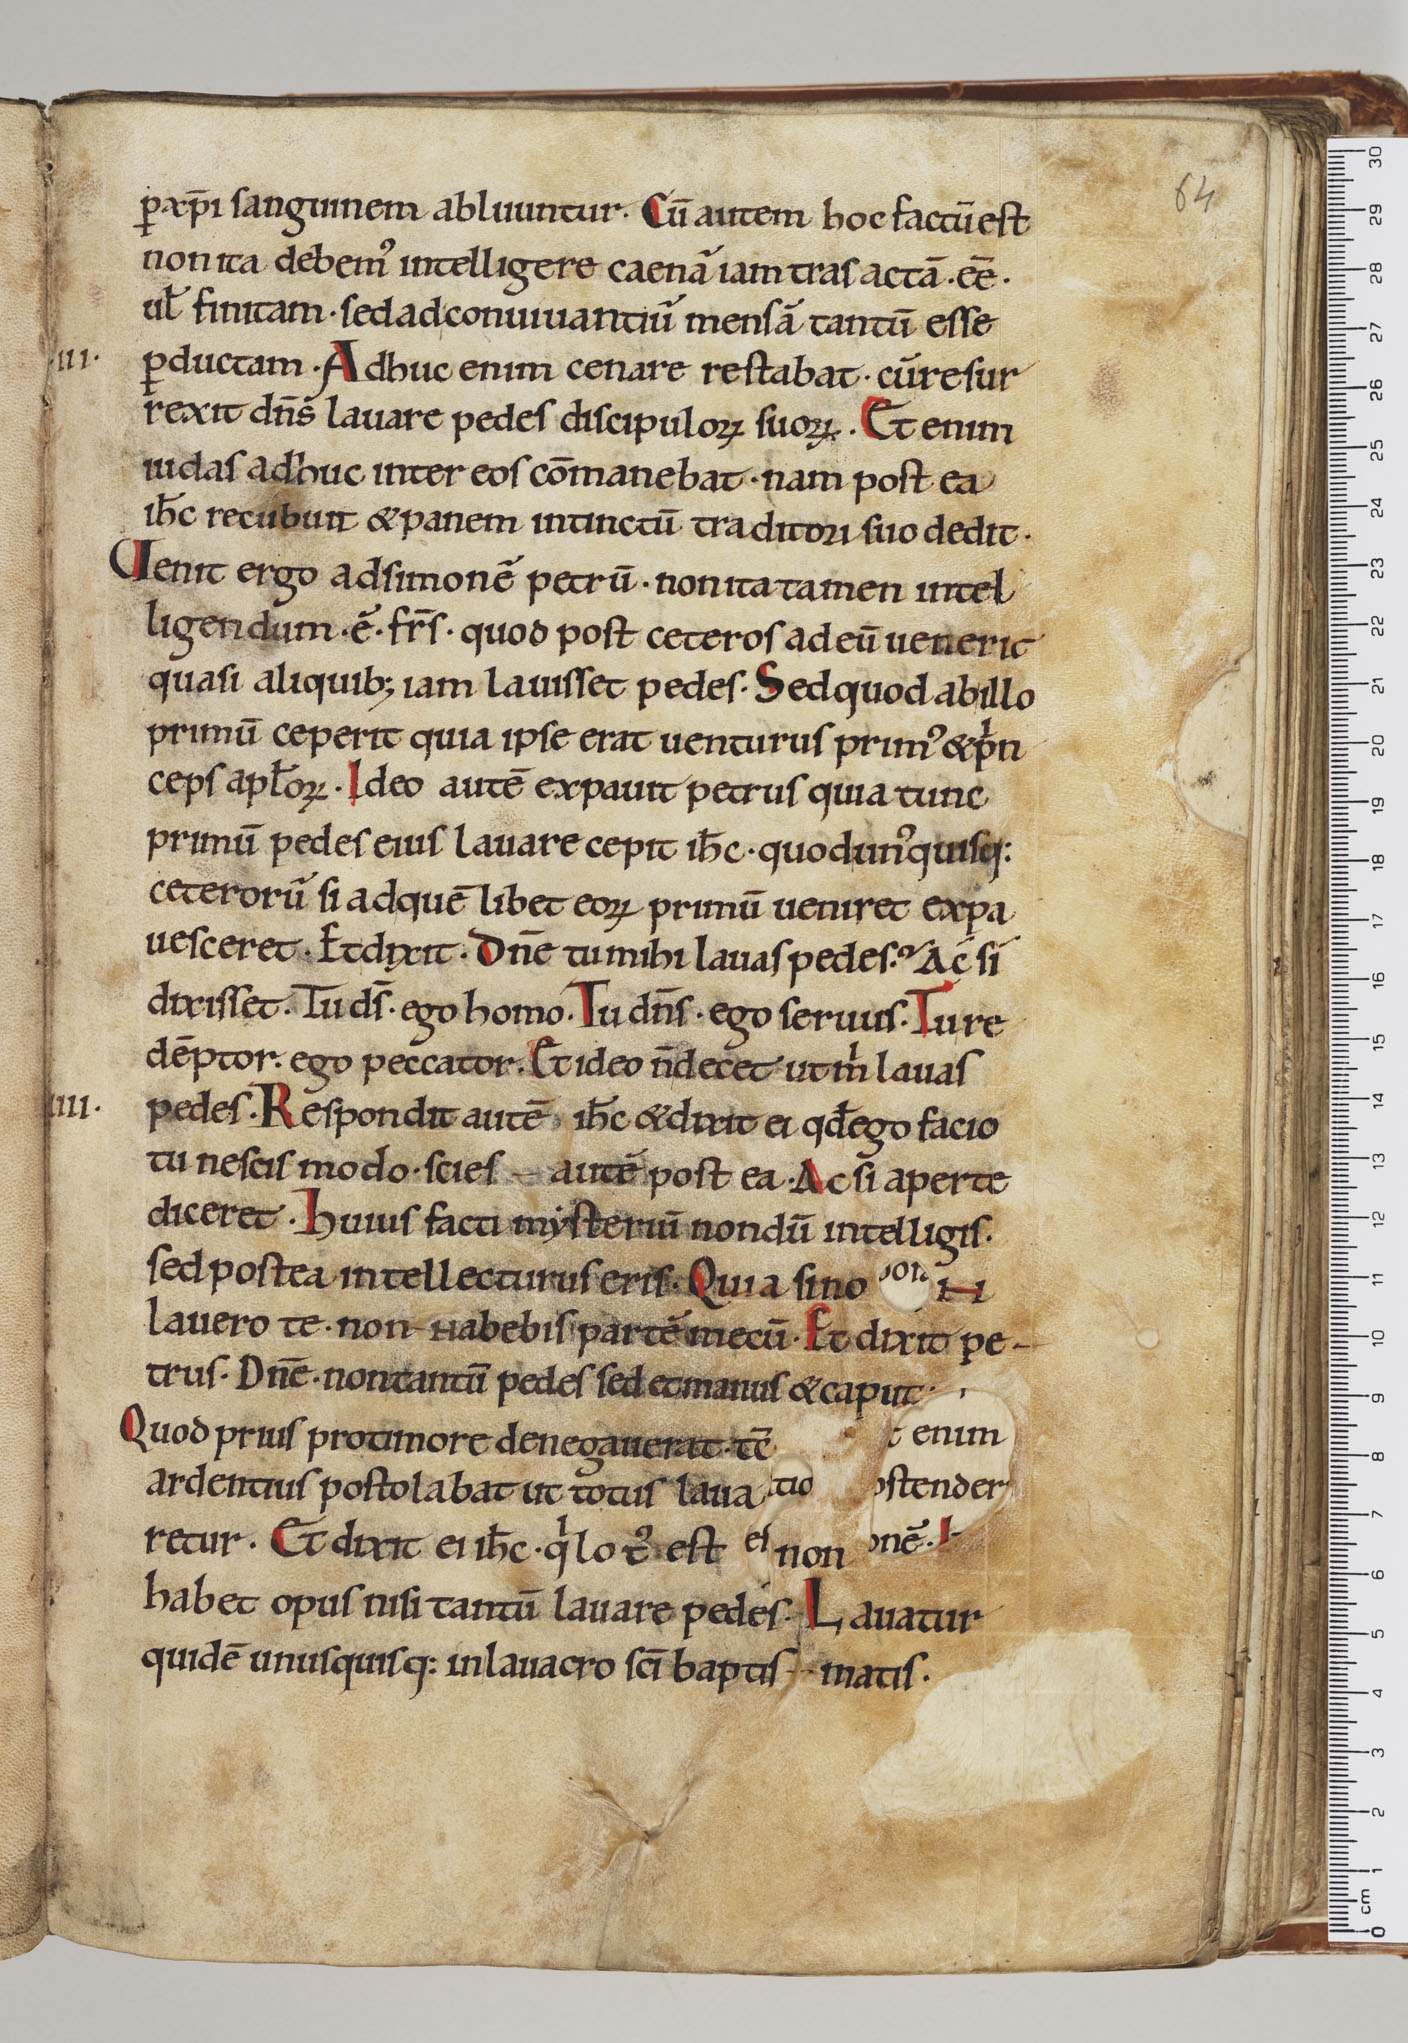 64
p̱ xp̄i sanguinem abluuntur. Cū autem hoc factū est
non ita debem᷒ intelligere caenā iam tras actā . eē .
ul̄ finitam . sed ad conuiuantiū mensā tantū esse
.III. p̱ductam . Adhuc enim cenare restabat . cū resur
rexit dn̄s lauare pedes discipuloꝝ suoꝝ . Et enim
iudas adhuc inter eos cōmanebat . nam post ea
ih̄c recubuit & panem intinctū traditori suo dedit .
Uenit ergo ad simonē petrū . non ita tamen intel
ligendum . ē . fr̄s . quod post ceteros ad eū uenerit
quasi aliquib; iam lauisset pedes . Sed quod ab illo
primū ceperit quia ipse erat uenturus prim᷒ & pͥn
ceps apl̄oꝝ . Ideo autē expauit petrus quia tunc
primū pedes eius lauare cepit ih̄c . quod un᷒quisq:
ceterorū si ad quē libet eoꝝ primū ueniret expa
uesceret . Et dixit . Dn̄e tu mihi lauas pedes . Ac si
dixisset . Tu ds̄ . ego homo . Tu dn̄s . ego seruus . Tu re
dēptor . ego peccator . Et ideo n̄ decet ut mͥ lauas
.IIII. pedes . Respondit autē ih̄c & dixit ei qd̄ ego facio
tu nescis modo . scies autē post ea . Ac si aperte
diceret . Huius facti mysteriū nondū intelligis .
sed postea intellecturus eris . Quia si no N
lauero te . non habebis partē mecū . Et dixit pe-
trus . Dn̄e . non tantū pedes sed et manus & caput .
Quod prius pro timore denegauerat . tē t enim
ardentius postolabat ut totus laua tio ostender
retur . Et dixit ei ih̄c . qͥ lot᷒ est ei non onē .
habet opus nisi tantū lauare pedes . Lauatur
quidē unusquisq: in lauacro sc̄i baptis-matis .